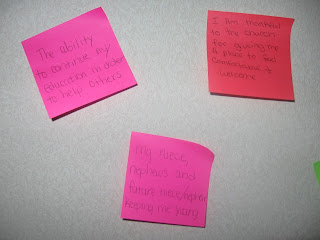 The ability
to continue my
Education in order
to help others
I Am thankful
to the church
for giving me
A place to feel
comfortable &
welcome
My niece,
nephews and
future niece/nephew
keeping me young